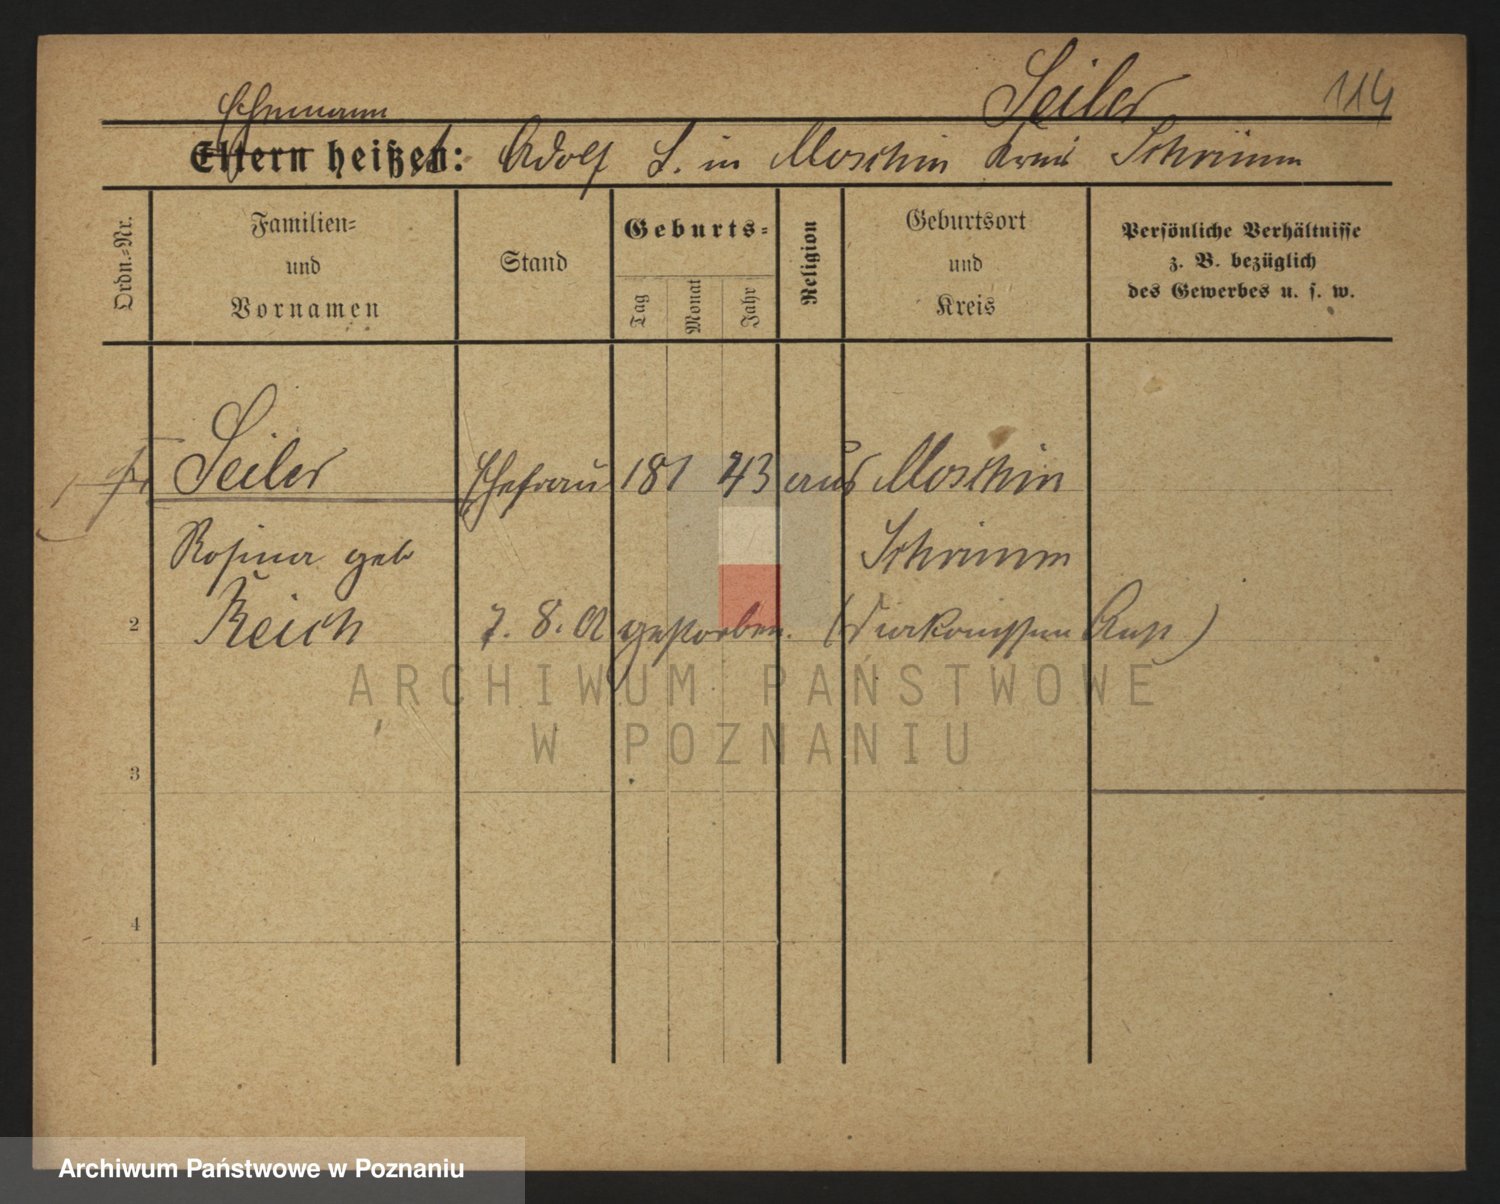 Seiler 114
Ehemann
Eltern heißen: Adolf S. in Moschin Kreis Schrimm
Ordn.=Nr.
Familien=
und
Vornamen
Stand
Geburts=
Tag
Monat
Jahr
Religion
Geburtsort
und
Kreis
Persönliche Verhältnisse
z. B. bezüglich
des Gewerbes u. s. w.
1 Seiler Ehefrau 18 1 43 aus Moschin
Rosina geb Schrimm
2 Reich 7. 8. 01 gestorben. (Diakonissen Anst)
ARCHIWUM PAŃSTWOWE
W POZNANIU
3
4
Archiwum Państwowe w Poznaniu